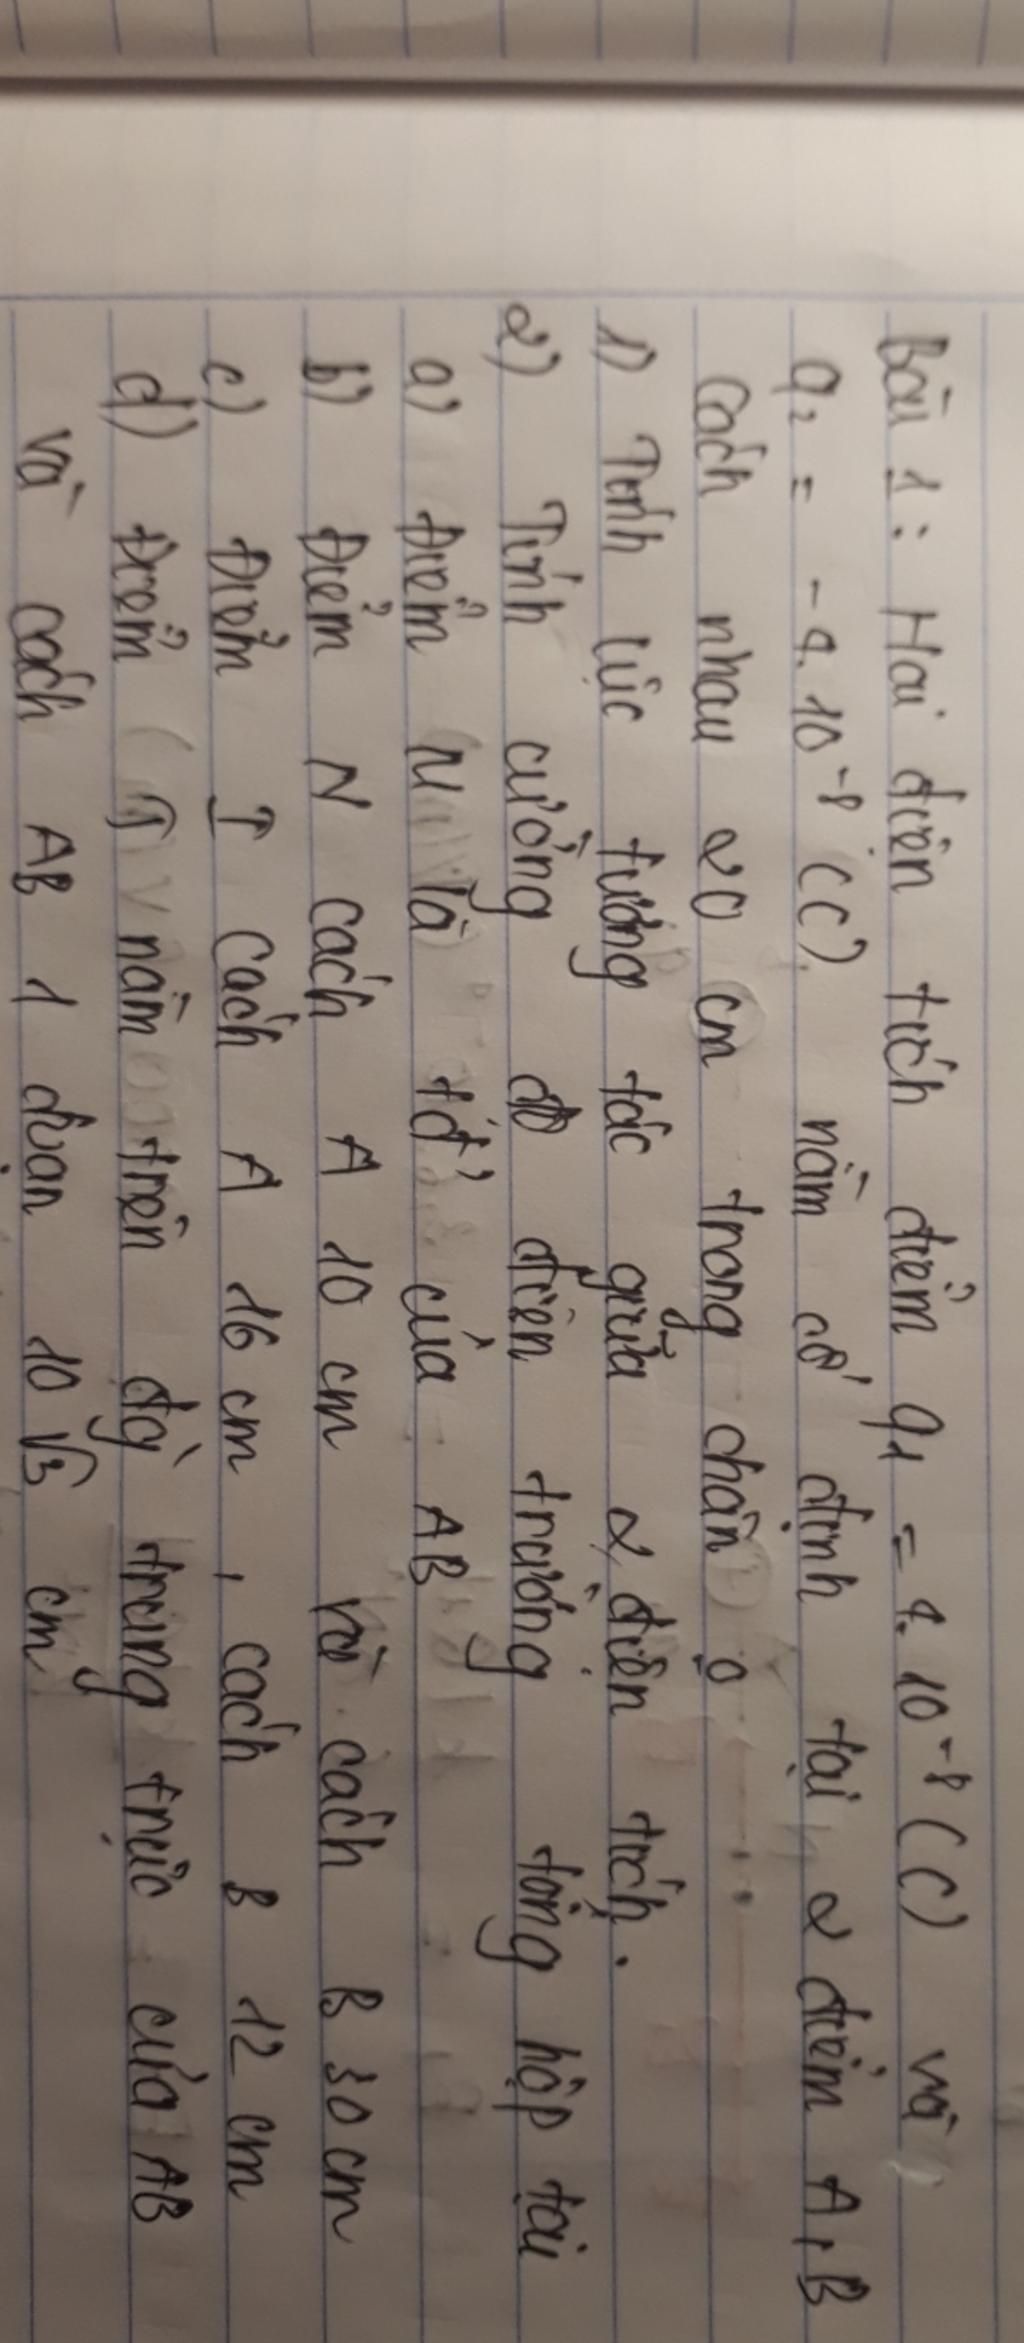 Bài 1: Hai điện tích điểm q₁ = 4.10⁻⁸ (C) và
q₂ = -4.10⁻⁸ (C) nằm cố định tại 2 điểm A, B
cách nhau 20 cm trong chân ọ
1) Tính lực tương tác giữa 2 điện tích.
2) Tính cường độ điện trường tổng hợp tại
a) Điểm M là tđ của AB
b) Điểm N cách A 10 cm và cách B 30 cm
c) Điểm I cách A 16 cm, cách B 12 cm
d) Điểm nằm trên đg trung trực của AB
và cách AB 1 đoạn 10√3 cm